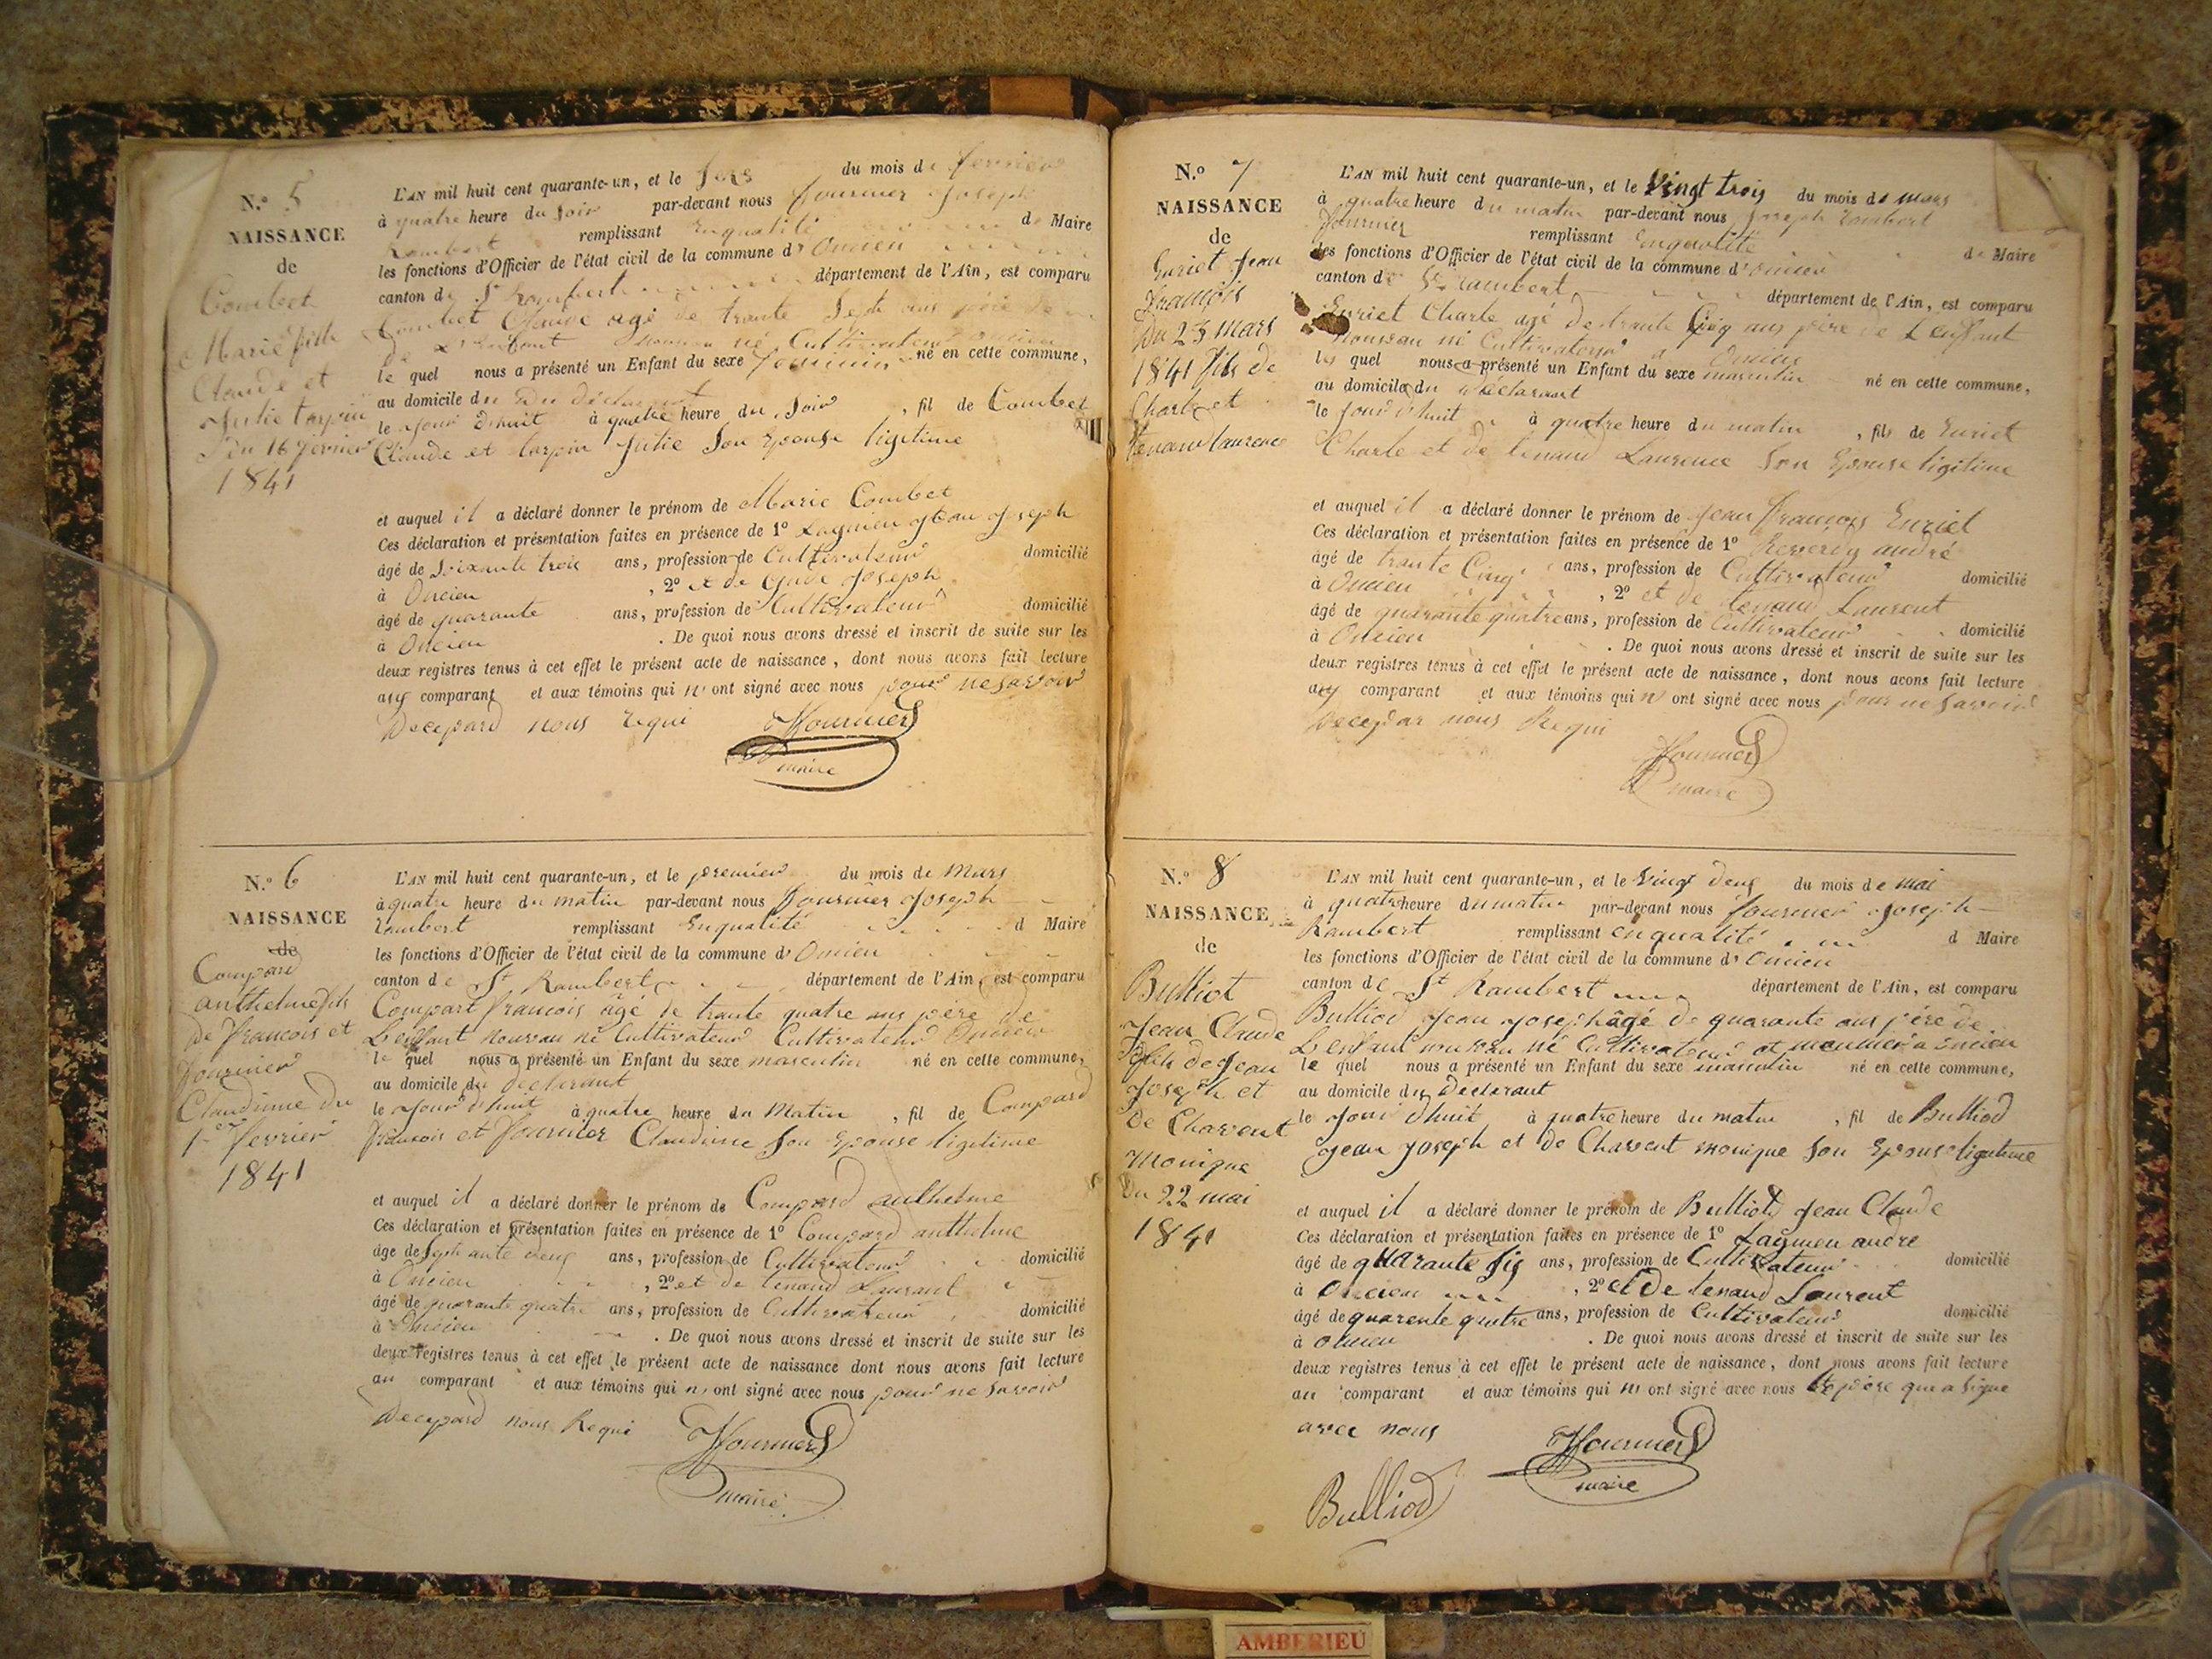 N.º 5
NAISSANCE
de
Combet
Marie fille
Claude et
Julie tarpin
Du 16 fevrier
1841
L'AN mil huit cent quarante-un, et le du mois de fevrier
à quatre heure du Soir par-devant nous fournier Joseph
Rambert remplissant Enqualité de Maire
les fonctions d'Officier de l'état civil de la commune d' Oncieu
canton de St Rambert département de l'Ain, est comparu
Combet Claude agé de trante Septe ans père de
L'enfant nouveau né Cultivateur
le quel nous a présenté un Enfant du sexe feminin né en cette commune,
au domicile du declarant
le jour dhuit à quatre heure du Soir , fil de Combet
Claude et tarpin Julie Son Epouse ligitime
et auquel il a déclaré donner le prénom de Marie Combet
Ces déclaration et présentation faites en présence de 1º Lagnieu Jean Joseph
âgé de Soixante trois ans, profession de Cultivateur domicilié
à Oncieu , 2º et de Joseph
âgé de quarante ans, profession de Cultivateur domicilié
à Oncieu . De quoi nous avons dressé et inscrit de suite sur les
deux registres tenus à cet effet le présent acte de naissance, dont nous avons fait lecture
aux comparant et aux témoins qui n' ont signé avec nous pour ne savoir
Decepard nous Requi JFournier
maire
N.º 6
NAISSANCE
de
Compard
anthelme fils
De francois et
fournier
Claudine du
1er fevrier
1841
L'AN mil huit cent quarante-un, et le premier du mois de Mars
à quatre heure du matin par-devant nous fournier Joseph
Rambert remplissant Enqualité d Maire
les fonctions d'Officier de l'état civil de la commune d' Oncieu
canton de St Rambert département de l'Ain, est comparu
Compart francois âgé de trante quatre ans père de
L'enffant nouvau né Cultivateur Cultivateur Oncieu
le quel nous a présenté un Enfant du sexe masculin né en cette commune,
au domicile du declarant
le Jour dhuit à quatre heure du Matin , fil de Compard
francois et fournier Claudine Son Epouse ligitime
et auquel il a déclaré donner le prénom de Compard anthelme
Ces déclaration et présentation faites en présence de 1º Compard anthelme
âgé de Septante deux ans, profession de Cultivateur domicilié
à Oncieu , 2º et de tenand Laurant
âgé de quarante quatre ans, profession de Cultivateur domicilié
à Oncieu . De quoi nous avons dressé et inscrit de suite sur les
deux registres tenus à cet effet le présent acte de naissance dont nous avons fait lecture
au comparant et aux témoins qui n' ont signé avec nous pour ne savoir
Decepard nous Requi JFournier
maire
N.º 7
NAISSANCE
de
Euriet Jean
François
Du 23 mars
1841 fils de
Charle et
tenand laurence
L'AN mil huit cent quarante-un, et le Vingt trois du mois de mars
à quatre heure du matin par-devant nous Joseph Rambert
fournier remplissant Enqualité de Maire
les fonctions d'Officier de l'état civil de la commune d' oncieu
canton de St rambert département de l'Ain, est comparu
Euriet Charle agé de trante Cinq ans père de L'enffant
nouvau né Cultivateur a Oncieu
les quel nous a présenté un Enfant du sexe masculin né en cette commune,
au domicile du declarant
le jour dhuit à quatre heure du matin , fils de Euriet
Charle et de tenand Laurence Son Epouse ligitime
et auquel il a déclaré donner le prénom de Jean françois Euriet
Ces déclaration et présentation faites en présence de 1º Reverdy andré
âgé de trante Cinq ans, profession de Cultivateur domicilié
à Oncieu , 2º et de tenand Laurent
âgé de quarante quatre ans, profession de Cultivateur domicilié
à Oncieu . De quoi nous avons dressé et inscrit de suite sur les
deux registres tenus à cet effet le présent acte de naissance, dont nous avons fait lecture
aux comparant et aux témoins qui n' ont signé avec nous pour ne savoir
Decepar nous Requi
JFournier
maire
N.º 8
NAISSANCE
de
Bulliot
Jean Claude
fils de Jean
Joseph et
De Charvent
Monique
Du 22 mai
1841
L'AN mil huit cent quarante-un, et le Vingt deux du mois de mai
à quatre heure du matin par-devant nous fournier Joseph
Rambert remplissant enqualité d Maire
les fonctions d'Officier de l'état civil de la commune d' Oncieu
canton de St Rambert département de l'Ain, est comparu
Bulliod Jean Joseph âgé de quarante ans père de
L'enfant nouvau né Cultivateur et meunier a oncieu
le quel nous a présenté un Enfant du sexe masculin né en cette commune,
au domicile du Declarant
le jour dhuit à quatre heure du matin , fil de Bulliod
Jean Joseph et de Charvent monique Son Epouse ligitime
et auquel il a déclaré donner le prénom de Bulliod Jean Claude
Ces déclaration et présentation faites en présence de 1º Lagnieu andre
âgé de quarante six ans, profession de Cultivateur domicilié
à Oncieu , 2º et De tenand Laurent
âgé de quarente quatre ans, profession de Cultivateur domicilié
à oncieu . De quoi nous avons dressé et inscrit de suite sur les
deux registres tenus à cet effet le présent acte de naissance, dont nous avons fait lecture
au comparant et aux témoins qui n' ont signé avec nous le père que a signe
avec nous JFournier
maire
Bulliod
AMBERIEU